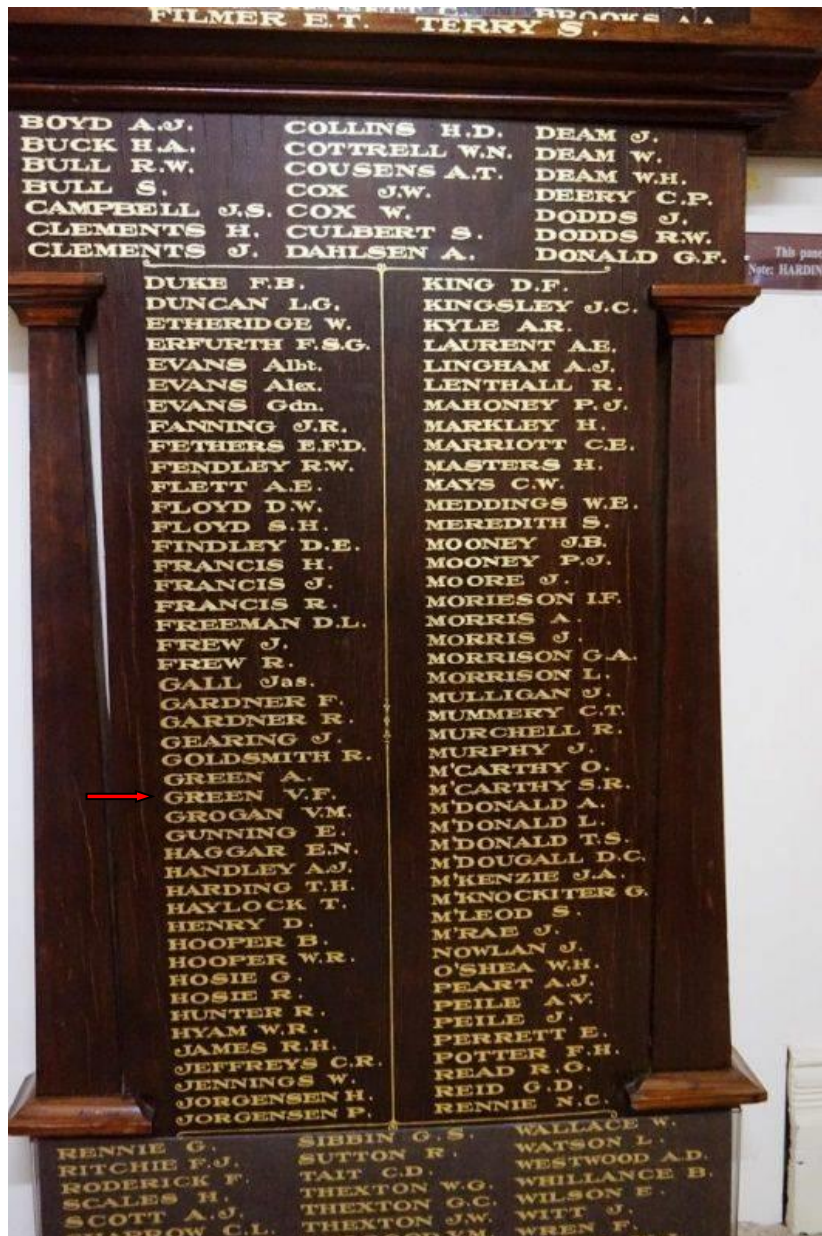 FILMER E.T. TERRY S.
BOYD A.J.
BUCK H.A.
BULL R.W.
BULL S.
CAMPBELL J.S.
CLEMENTS H.
CLEMENTS J.
COLLINS H.D.
COTTRELL W.N.
COUSENS A.T.
COX J.W.
COX W.
CULBERT S.
DAHLSEN A.
DEAM J.
DEAM W.
DEAM W.H.
DEERY C.P.
DODDS J.
DODDS R.W.
DONALD G.F.
This
Note: HARDIN
DUKE F.B.
DUNCAN L.G.
ETHERIDGE W.
ERFURTH F.S.G.
EVANS Albt.
EVANS Alex.
EVANS Gdn.
FANNING J.R.
FETHERS E.F.D.
FENDLEY R.W.
FLETT A.E.
FLOYD D.W.
FLOYD S.H.
FINDLEY D.E.
FRANCIS H.
FRANCIS J.
FRANCIS R.
FREEMAN D.L.
FREW J.
FREW R.
GALL Jas.
GARDNER F.
GARDNER R.
GEARING J.
GOLDSMITH R.
GREEN A.
GREEN V.F.
GROGAN V.M.
GUNNING E.
HAGGAR E.N.
HANDLEY A.J.
HARDING T.H.
HAYLOCK T.
HENRY D.
HOOPER B.
HOOPER W.R.
HOSIE G.
HOSIE R.
HUNTER R.
HYAM W.R.
JAMES R.H.
JEFFREYS C.R.
JENNINGS W.
JORGENSEN H.
JORGENSEN P.
KING D.F.
KINGSLEY J.C.
KYLE A.R.
LAURENT A.E.
LINGHAM A.J.
LENTHALL R.
MAHONEY P.J.
MARKLEY H.
MARRIOTT C.E.
MASTERS H.
MAYS C.W.
MEDDINGS W.E.
MEREDITH S.
MOONEY J.B.
MOONEY P.J.
MOORE J.
MORIESON I.F.
MORRIS A.
MORRIS J.
MORRISON G.A.
MORRISON L.
MULLIGAN J.
MUMMERY C.T.
MURCHELL R.
MURPHY J.
M'CARTHY O.
M'CARTHY S.R.
M'DONALD A.
M'DONALD L.
M'DONALD T.S.
M'DOUGALL D.C.
M'KENZIE J.A.
M'KNOCKITER G.
M'LEOD S.
M'RAE J.
NOWLAN J.
O'SHEA W.H.
PEART A.J.
PEILE A.V.
PEILE J.
PERRETT E.
POTTER F.H.
READ R.G.
REID G.D.
RENNIE N.C.
RENNIE G.
RITCHIE F.J.
RODERICK F.
SCALES H.
SCOTT A.J.
C.L.
SIBBIN G.S.
SUTTON R.
TAIT C.D.
THEXTON W.G.
THEXTON G.C.
THEXTON J.W.
WALLACE W.
WATSON L.
WESTWOOD A.D.
WHILLANCE B.
WILSON E.
WITT J.
WREN F.